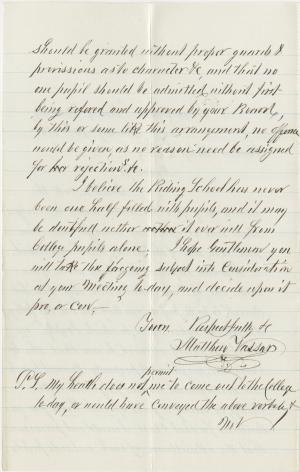 should be granted without proper guards &
provissions as to character &c, and that no
one pupil should be admitted without first
being refered and approved by your Board,
by this or some like this arrangement, no offence
would be given as no reason need be assigned
for her rejection &c.
I believe the Riding School has never
been one half filled with pupils, and it may
be doubted nether it ever will from
College pupils alone. I hope Gentlemen you
will take the forgoing subject into Consideration
at your Meeting to-day, and decide upon it
pro, or con,-
Yours Respectfully &c
Matthew Vassar
P.S. My health does not permit me to come out to the College
to-day, or would have conveyed the above verbaly
M.V